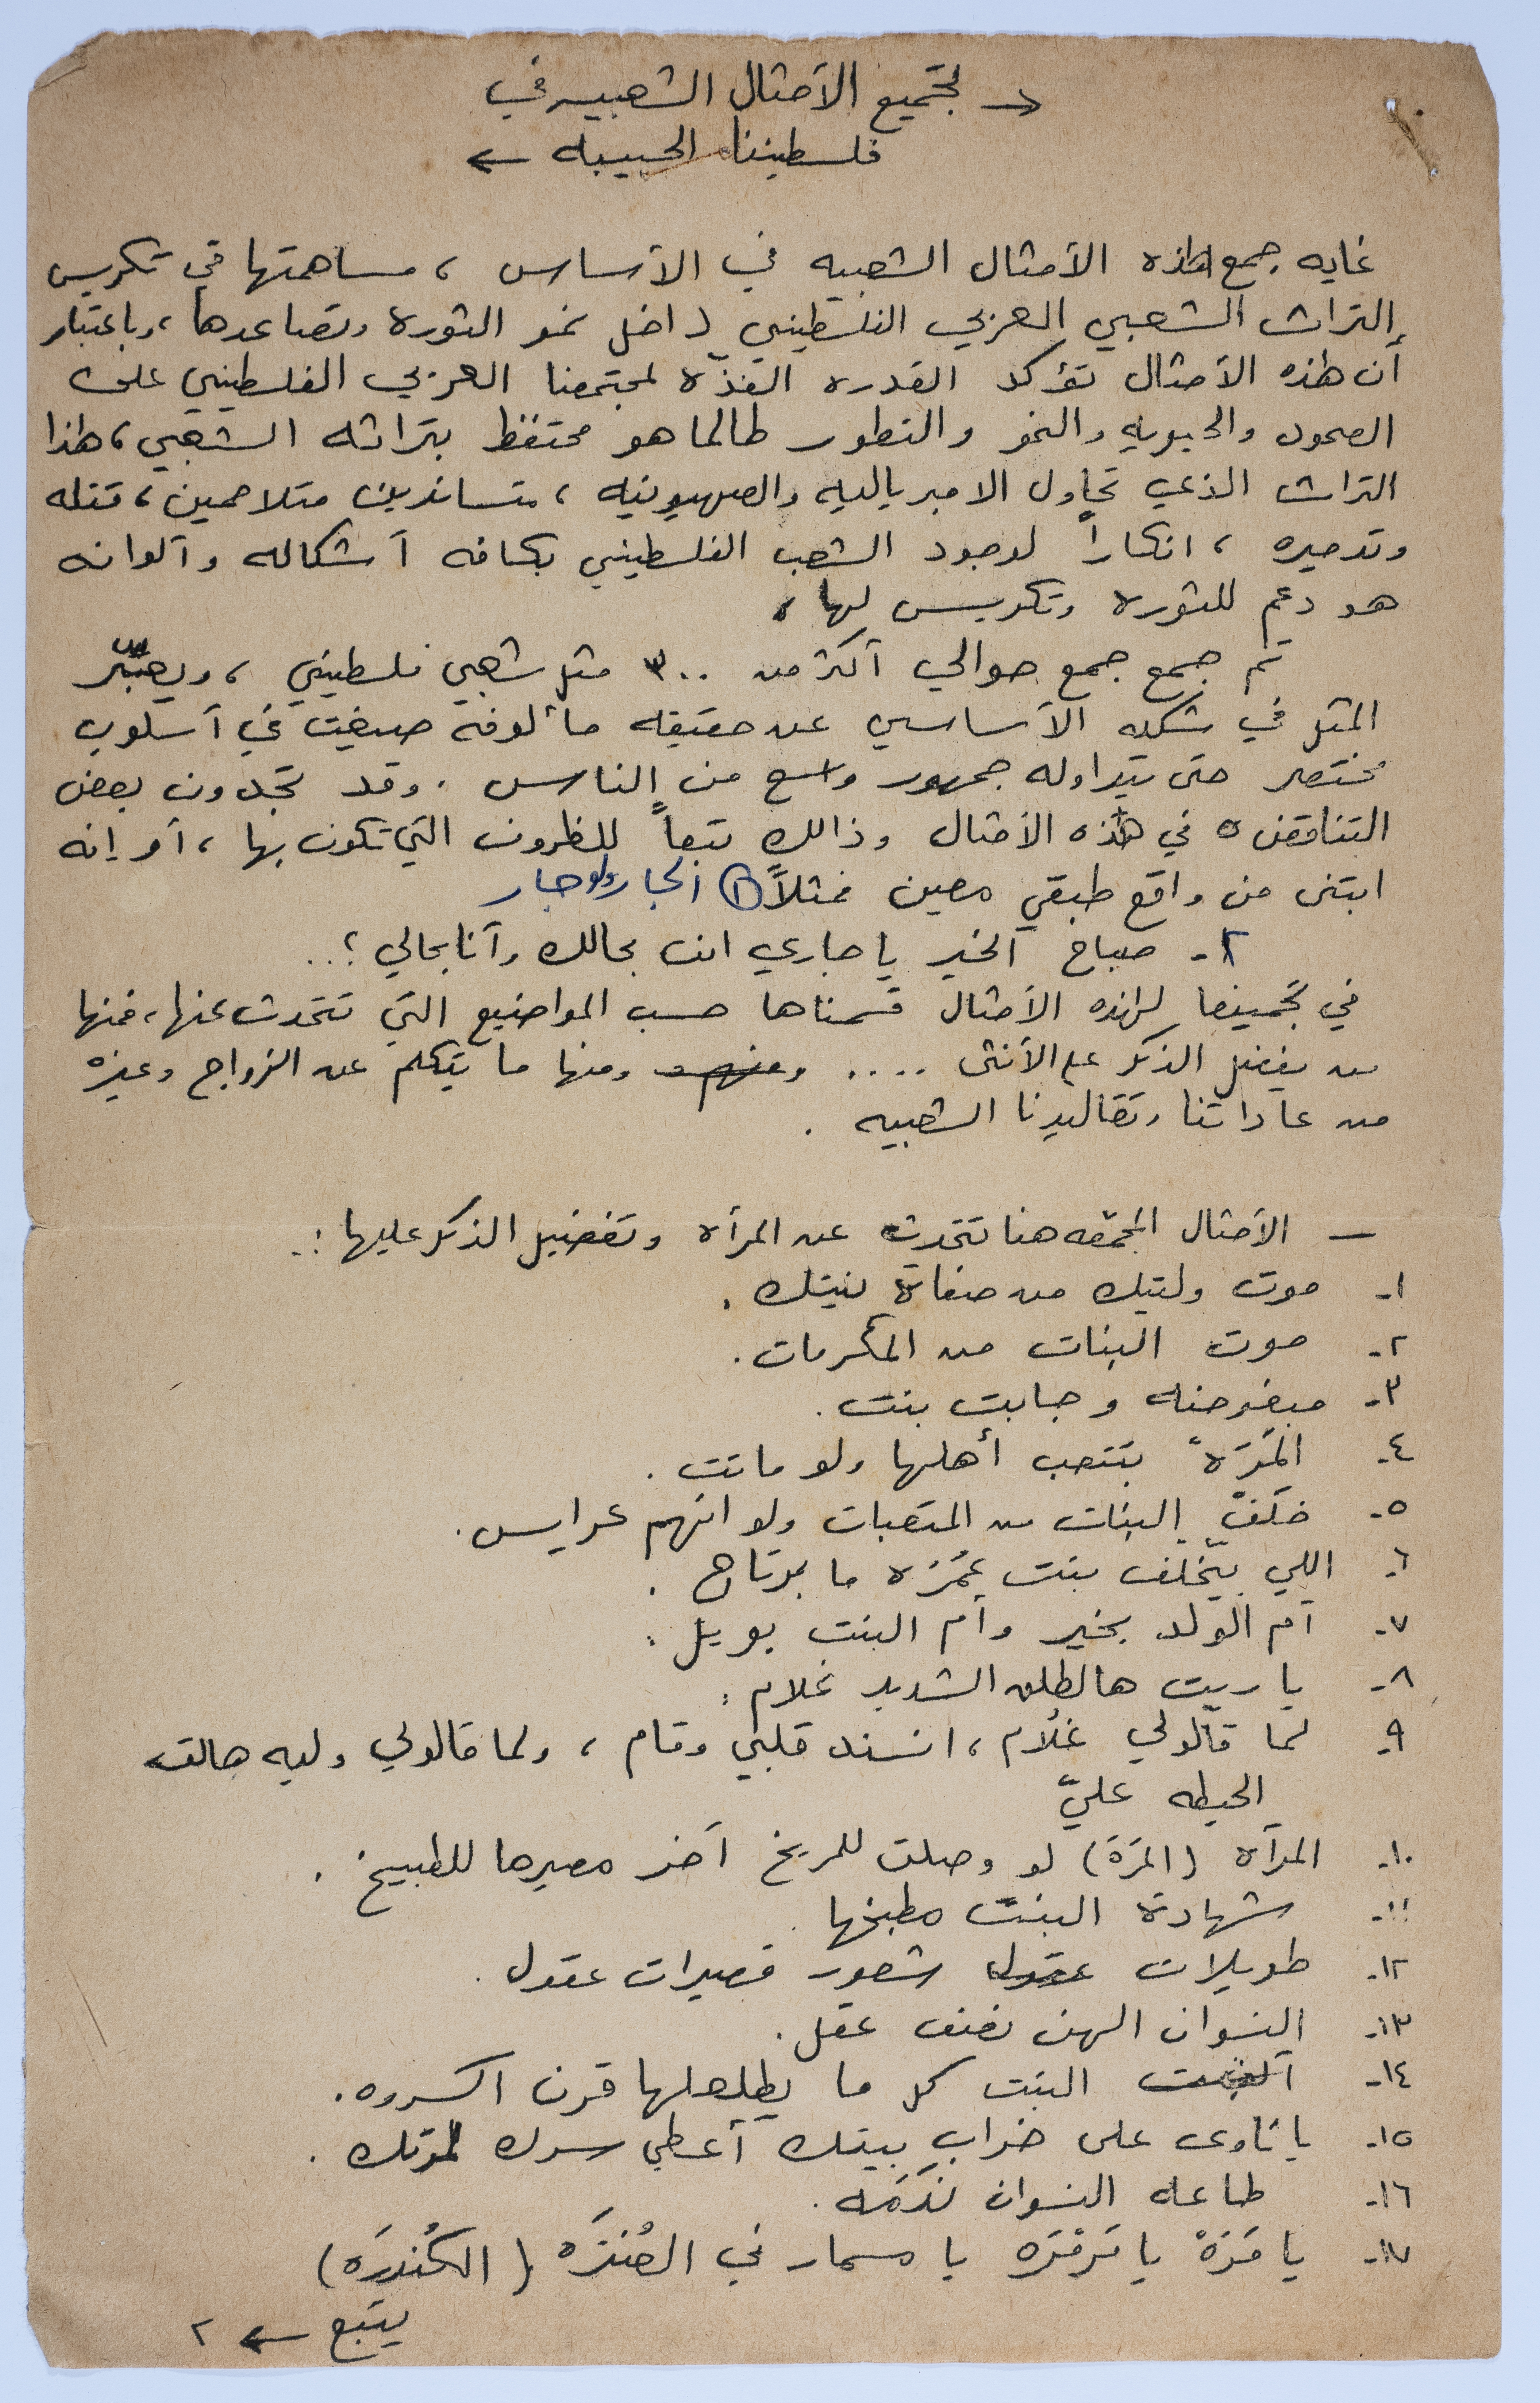 → تجميع الأمثال الشعبيه في
فلسطيننا الحبيبه ←
غايه جمع هذه الأمثال الشعبيه في الأساس ، مساهمتها في تكريس
التراث الشعبي العربي الفلسطيني داخل نمو الثوره وتصاعدها ، وباعتبار
أن هذه الأمثال تؤكد القدره الفذّه لمجتمعنا العربي الفلسطيني على
الصمود والحيويه والنمو والتطور طالما هو محتفظ بتراثه الشعبي ، هذا
التراث الذي تحاول الامبرياليه والصهيونيه ، متساندين متلاحمين ، قتله
وتدميره ، انكاراً لوجود الشعب الفلسطيني بكافه أشكاله وألوانه
هو دعم للثوره وتكريس لها .
تم جمع جمع حوالي أكثر من ٣٠٠ مثل شعبي فلسطيني ، ويعبّر
المثل في شكله الأساسي عن حقيقه مألوفه صيغت في أسلوب
مختصر حتى يتداوله جمهور واسع من الناس . وقد تجدون بعض
التناقض في هذه الأمثال وذالك تبعاً للظروف التي تكون بها ، أو إنه
ابتنى من واقع طبقي معين فمثلاً ① الجار ولو جار
٢- صباح الخير يا جاري انت بحالك وأنا بحالي ؛ ..
في تجميعنا لهذه الأمثال قسمناها حسب المواضيع التي تتحدث عنها ، فمنها
من يفضل الذكر على الأنثى .... ومنها ما يتكلم عن الزواج وغيره
من عاداتنا وتقاليدنا الشعبيه .
— الأمثال المجمّعه هنا تتحدث عن المرأه وتفضيل الذكر عليها : ..
١- موت وليتك من صفاة نيتك .
٢- موت البنات من المكرمات .
٣- مبغوضه وجابت بنت .
٤- المَرَه بتتعب أهلها ولو ماتت .
٥- خلَفْ البنات من المتعبات ولو انهم عرايس .
٦- اللي بيّخلف بنت عُمْره ما برتاح .
٧- أم الولد بخير وأم البنت بويل .
٨- يا ريت هالطلق الشديد غلام .
٩- لما قالولي غلام ، انسند قلبي وقام ، ولما قالولي وليه مالت
الحيطه عليّ
١٠- المرأه (المَرَة) لو وصلت للمريخ آخر مصيرها للطبيخ .
١١- شهادة البنت مطبخها .
١٢- طويلات شعور قصيرات عقول .
١٣- النسوان الهن نصف عقل .
١٤- البنت كل ما يطلعلها قرن اكسروه .
١٥- يا ناوى على خراب بيتك أعطي سرك لمرتك .
١٦- طاعه النسوان نَدَمَه .
١٧- يا مَرَهْ يا مَرْمَرَه يا مسمار في الصُنْرَه (الكُندرَه)
يتبع ← ٢